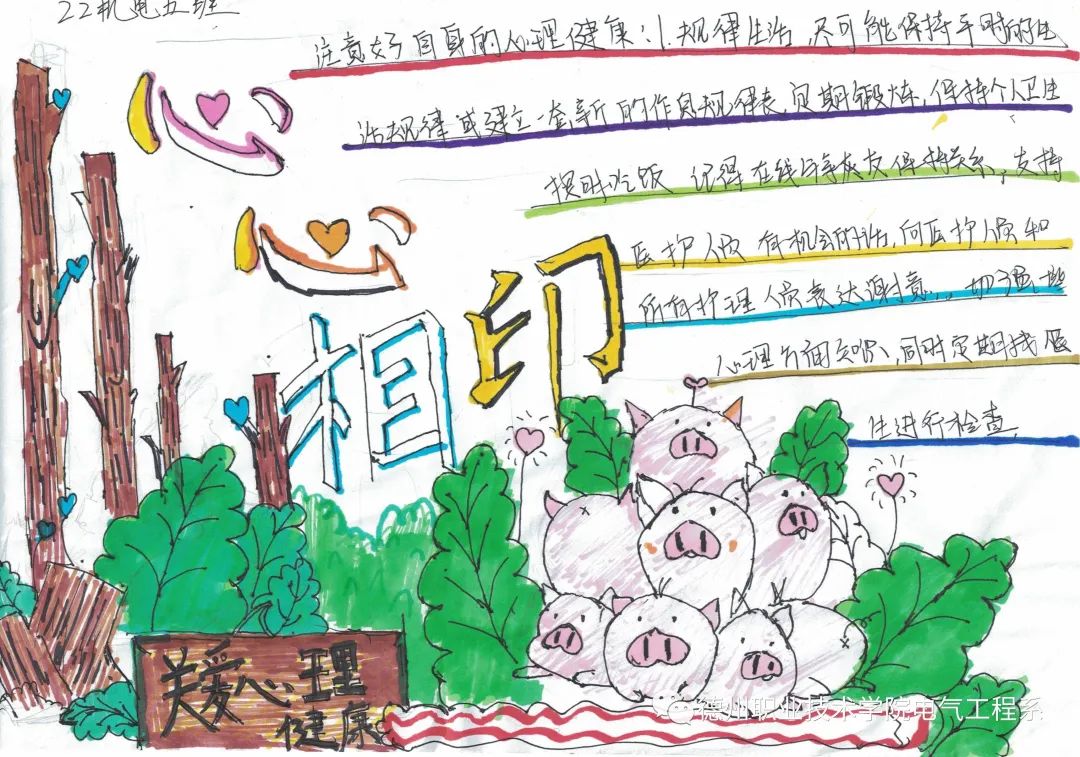 22机电五班
注意好自身的心理健康:1.规律生活,尽可能保持平时的生
活规律或建立一套新的作息规律表,定期锻炼,保持个人卫生
按时吃饭 记得在线与亲友保持关系,支持
医护人员 有机会的话,向医护人员和
所有护理人员表达谢意,加强些
心理方面知识、同时定期找医
生进行检查.
心心相印
关爱心理
健康
德州职业技术学院电气工程系